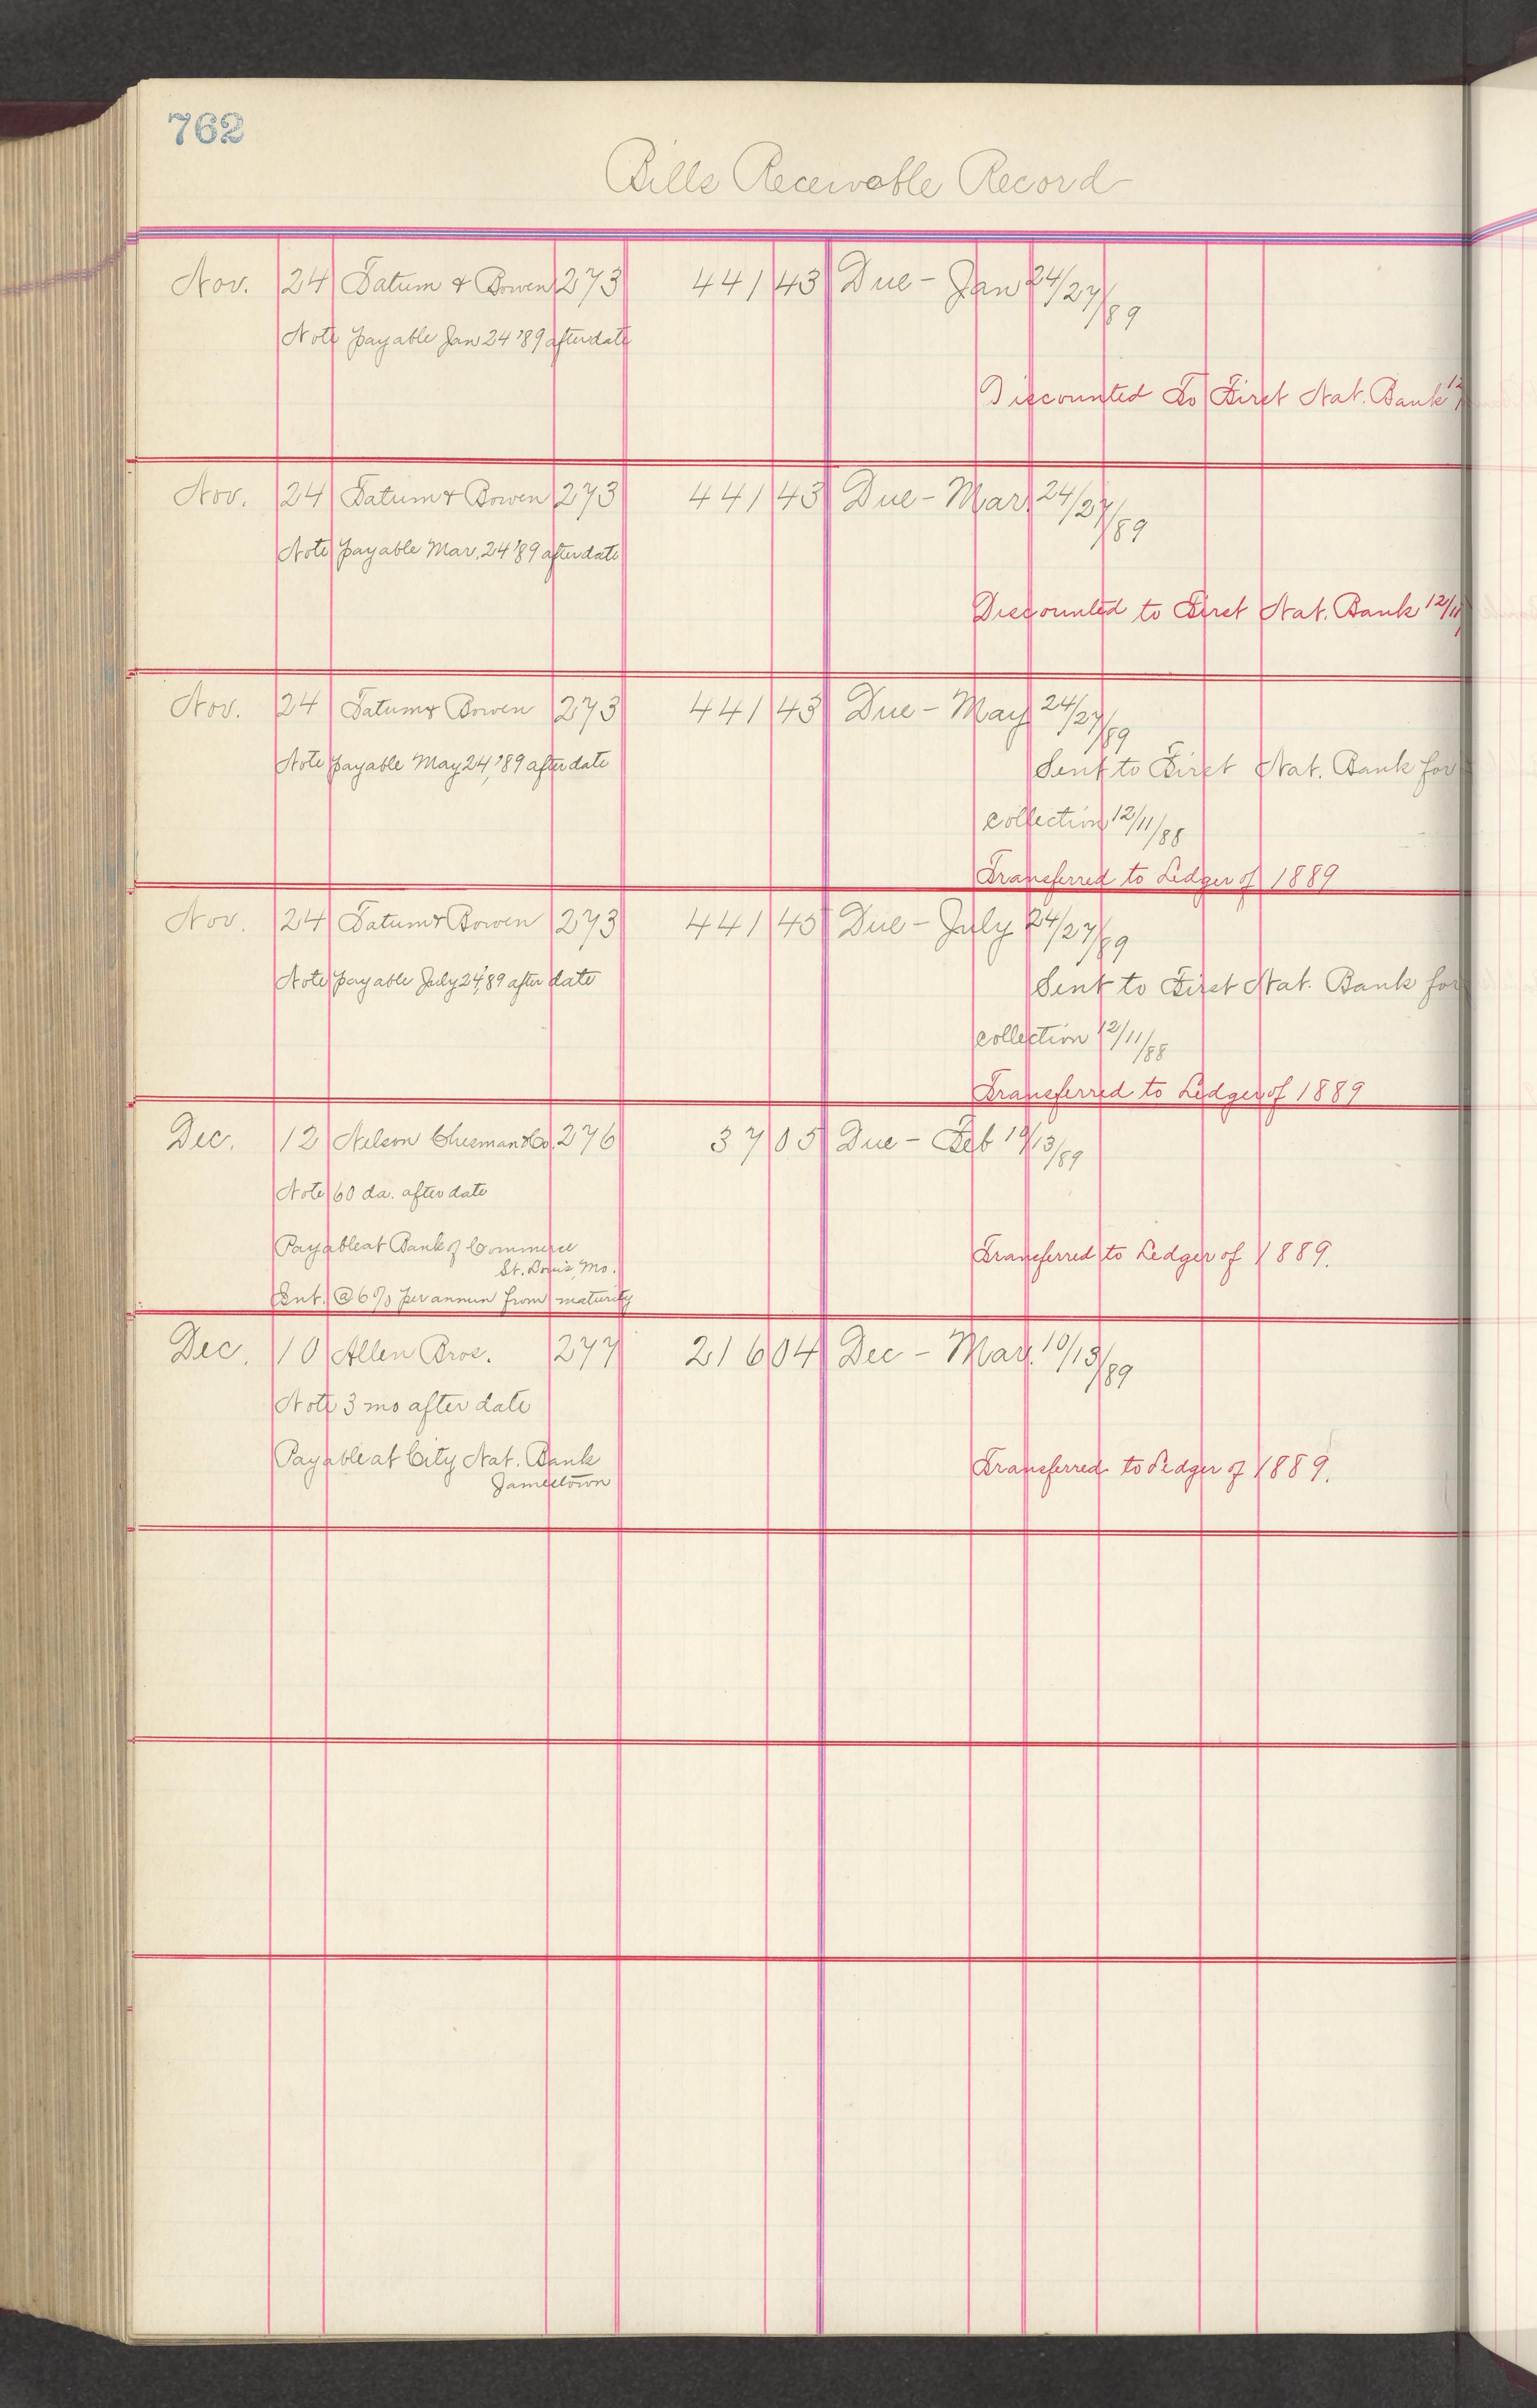 762
Bills Receivable Record
Nov. 24 Tatum & Bowen 273 441 43 Due - Jan 24/27/89
Note payable Jan 24 '89 after date
Discounted To First Nat. Bank
Nov. 24 Tatum & Bowen 273 441 43 Due - Mar. 24/27/89
Note payable Mar. 24 '89 after date
Discounted to First Nat. Bank 12/11
Nov. 24 Tatum & Bowen 273 441 43 Due - May 24/27/89
Note payable May 24, '89 after date
Sent to First Nat. Bank for
collection 12/11/88
Transferred to Ledger of 1889
Nov. 24 Tatum & Bowen 273 441 45 Due - July 24/27/89
Note payable July 24, '89 after date
Sent to First Nat. Bank for
collection 12/11/88
Transferred to Ledger of 1889
Dec. 12 Nelson Chesman & Co. 276 37 05 Due - Feb 10/13/89
Note 60 da. after date
Payable at Bank of Commerce
St. Louis, Mo.
Transferred to Ledger of 1889.
Int. @ 6% per annum from maturity
Dec. 10 Allen Bros. 277 216 04 Dec - Mar. 10/13/89
Note 3 mo after date
Payable at City Nat. Bank
Jamestown
Transferred to Ledger of 1889.